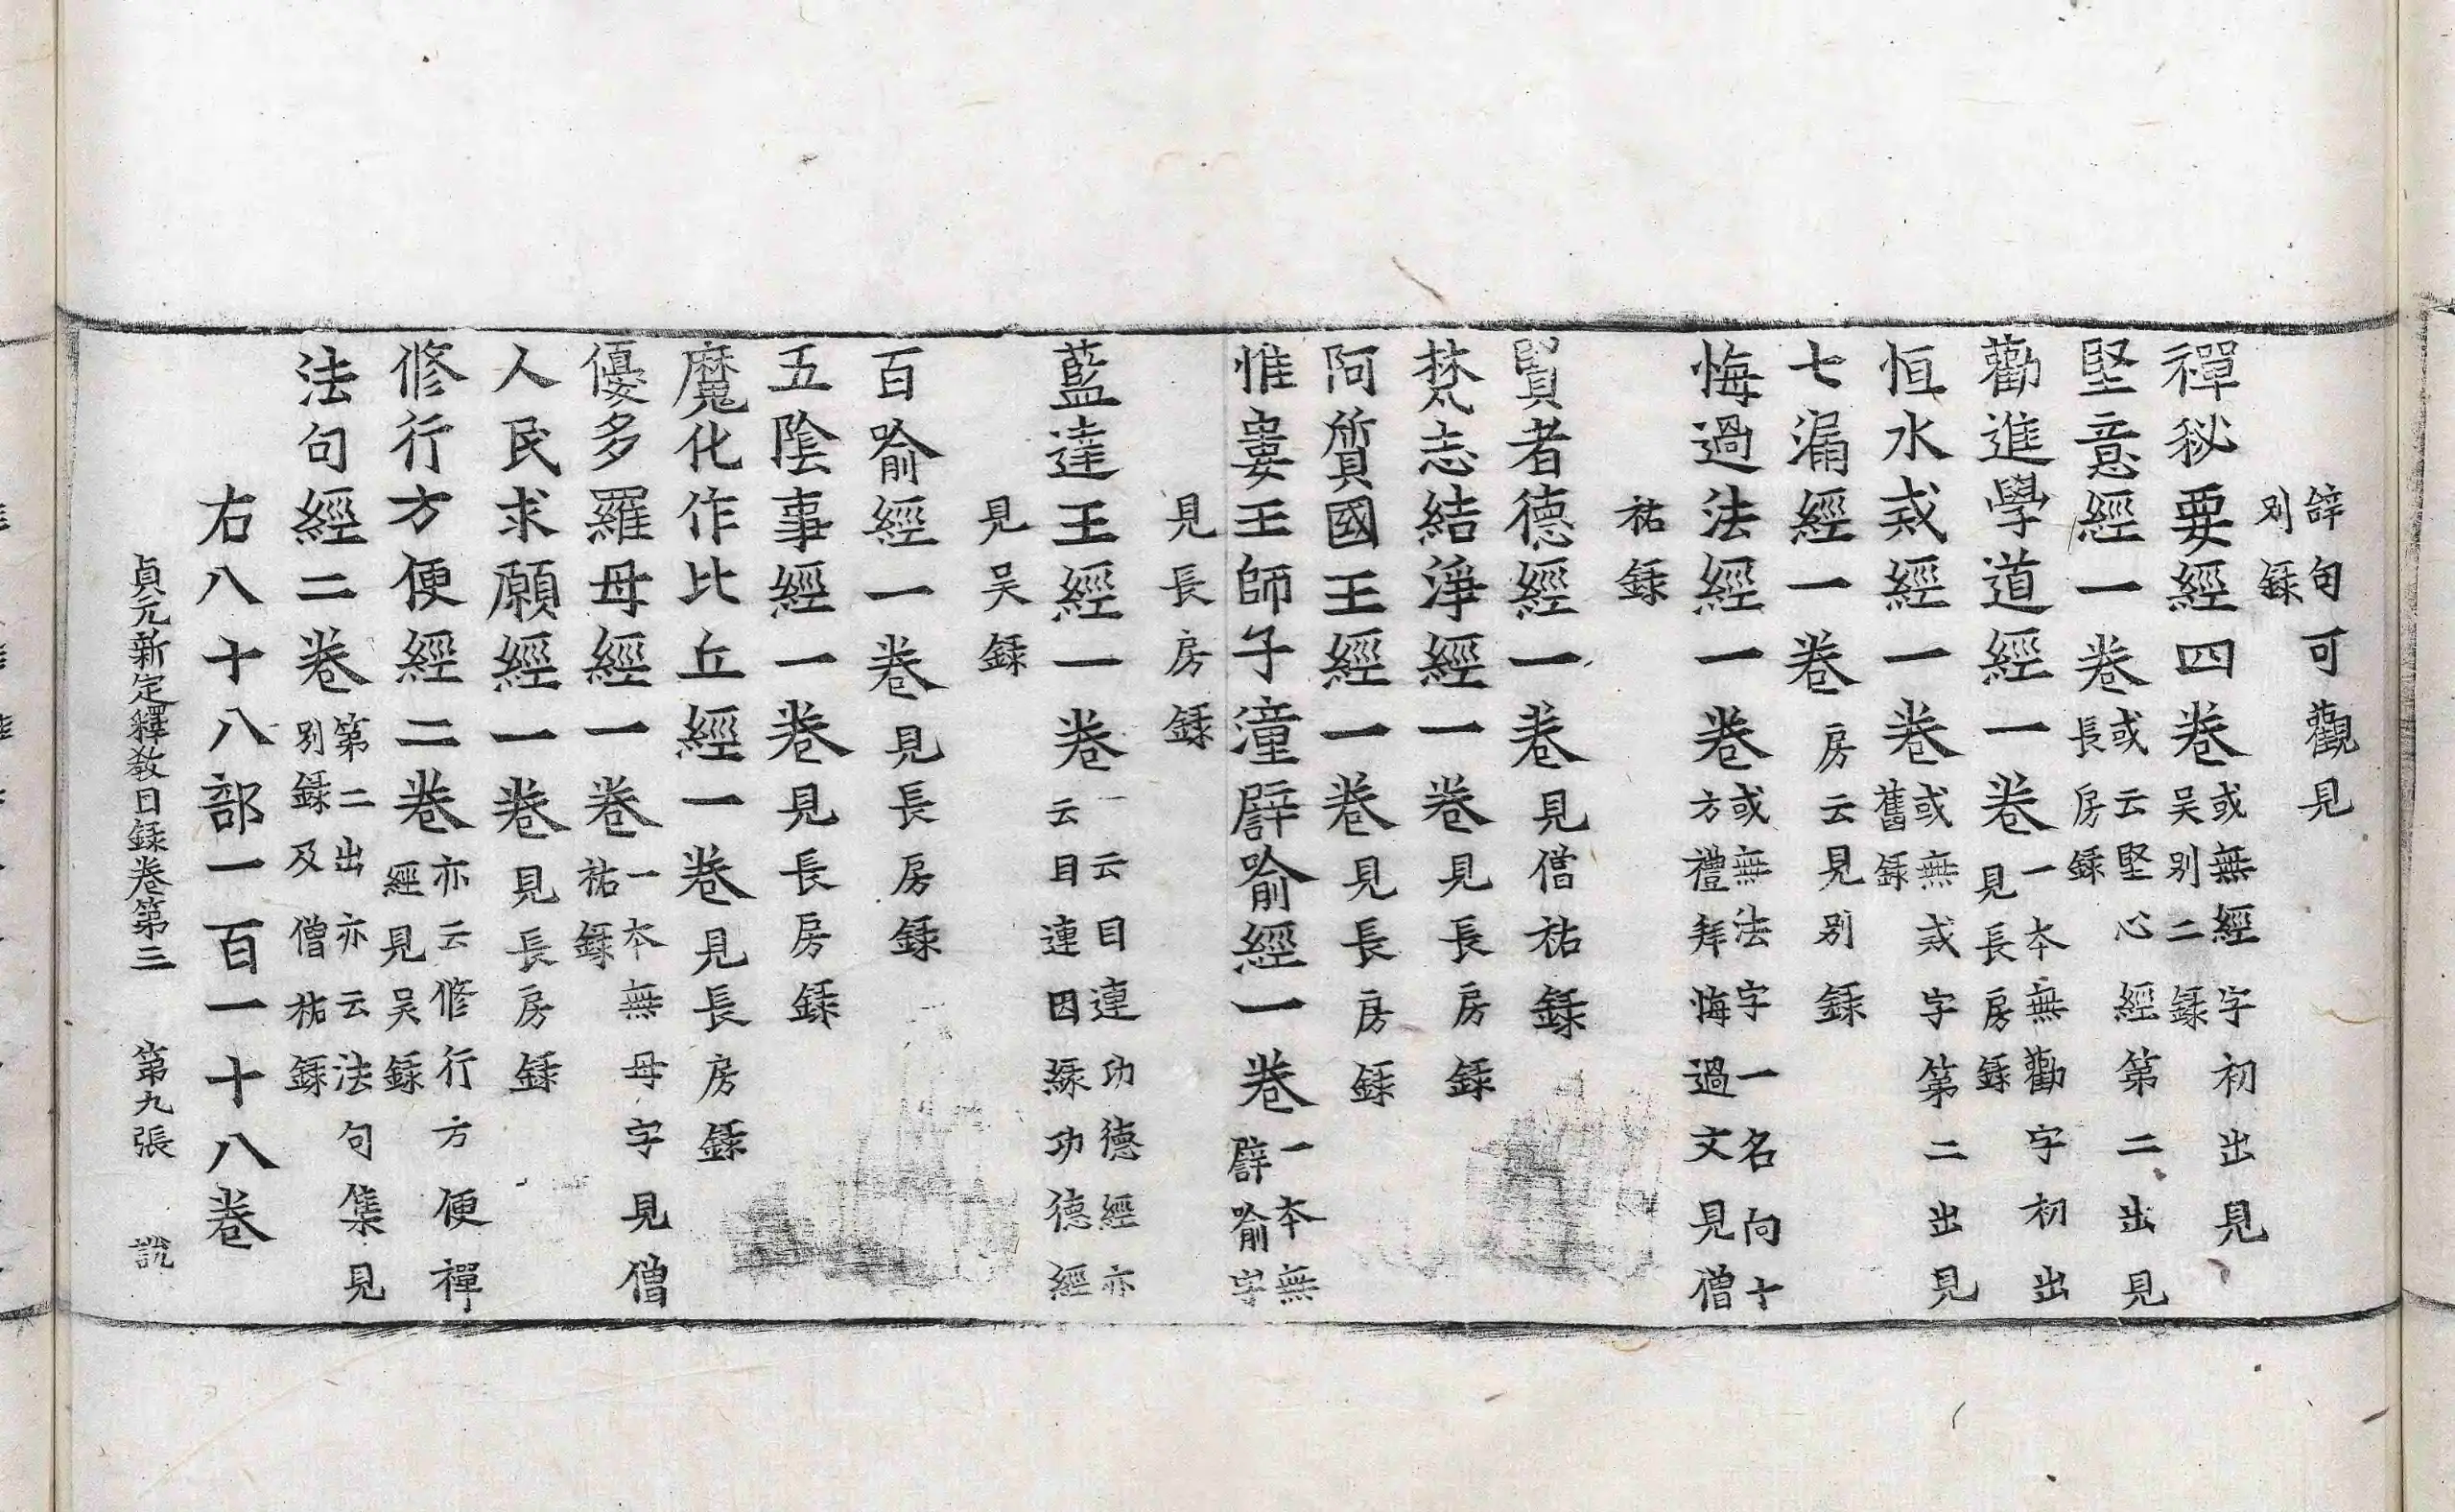 辝句可觀見
別録
禪秘要經四卷或無經字初出見
吴别二錄
堅意經一卷或云堅心經第二出見
長房錄
勸進學道經一卷一本無勸字初出
見長房錄
恒水戒經一卷或無戒字第二出見
舊錄
七漏經一卷房云見别錄
悔過法經一卷或無法字一名向十
方禮拜悔過文見僧
祐錄
賢者德經一卷見僧祐錄
梵志結淨經一卷見長房錄
阿質國王經一卷見長房錄
惟婁王師子潼譬喻經一卷一本無
譬喻字
見長房錄
藍達王經一卷一云目連功德經亦
云目連因緣功德經
見吴錄
百喻經一卷見長房錄
五陰事經一卷見長房錄
魔化作比丘經一卷見長房錄
優多羅母經一卷一本無母字見僧
祐錄
人民求願經一卷見長房錄
修行方便經二卷亦云修行方便禪
經見吴錄
法句經二卷第二出亦云法句集見
別錄及僧祐錄
右八十八部一百一十八卷
貞元新定釋教目録卷第三 第九張 說